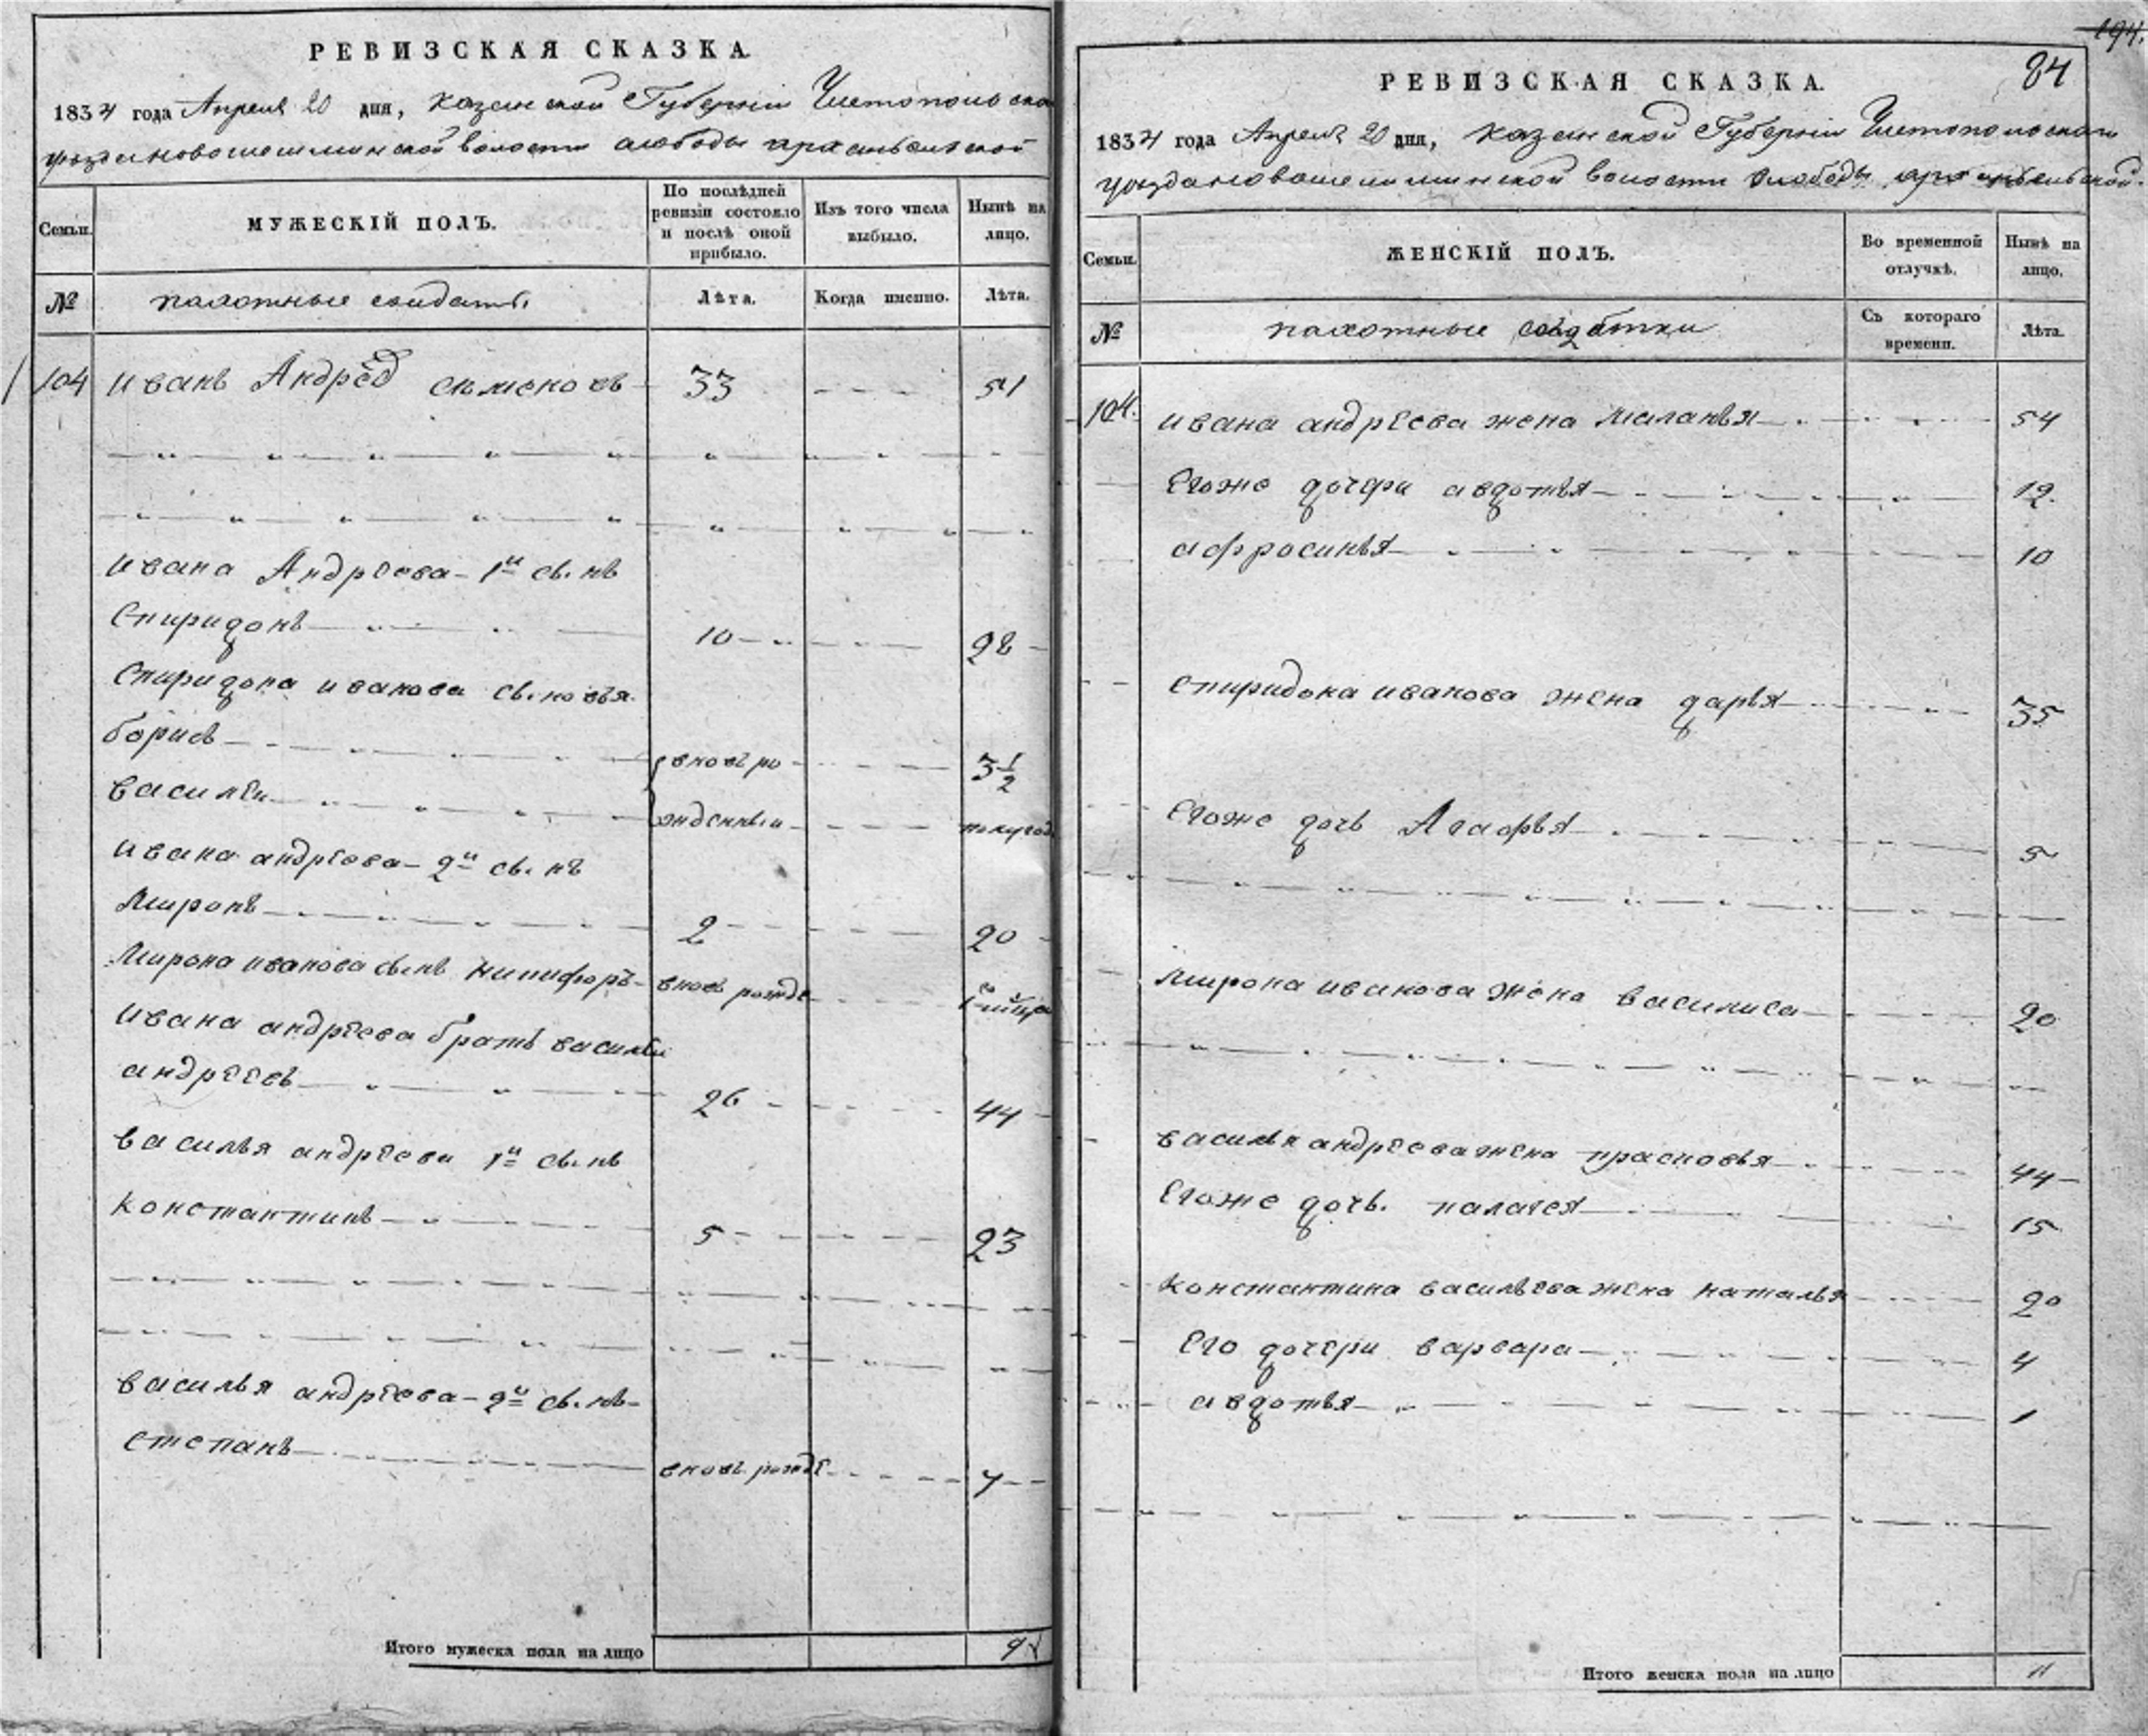 РЕВИЗСКАЯ СКАЗКА.
1834 года Апреля 20 дня, Казанской Губерніи Чистопольска
уезда новошешминской волости слободы архангельской
Семьи.
МУЖЕСКІЙ ПОЛЪ.
По послѣдней ревизіи состояло и послѣ оной прибыло.
Изъ того числа выбыло.
Нынѣ на лицо.
№
пахотные солдаты.
Лѣта.
Когда именно.
Лѣта.
104 иванъ Андрѣев семеновъ 33 51
ивана Андреева 1й сынъ
Спиридонъ 10 28
Спиридона иванова сыновья
борисъ вновь ро 3 1/2
василеи жденныи полугод
ивана андреева 2й сынъ
Миронъ 2 20
Мирона иванова сынъ никифоръ вновь рожде
ивана андреева братъ василеи
андреевъ 26 44
василья андреева 1й сынъ
константинъ 5 23
василья андреева 2й сынъ
степанъ вновь рожде 7
Итого мужеска пола на лицо 9
194.
84
РЕВИЗСКАЯ СКАЗКА.
1834 года Апреля 20 дня, Казанской Губерніи Чистопольскаго
уезда новошешминской волости слободы архангельской
Семьи.
ЖЕНСКІЙ ПОЛЪ.
Во временной отлучкѣ.
Нынѣ на лицо.
№
пахотные солдатки
Съ котораго времени.
Лѣта.
104. ивана андреева жена маланья 54
Егоже дочери авдотья 12
афросинья 10
спиридона иванова жена дарья 35
Егоже дочь Агафья 5
мирона иванова жена василиса 20
василья андреева жена прасковья 44
Егоже дочь палагея 15
константина васильева жена наталья 20
Его дочери варвара 4
авдотья 1
Итого женска пола на лицо 11